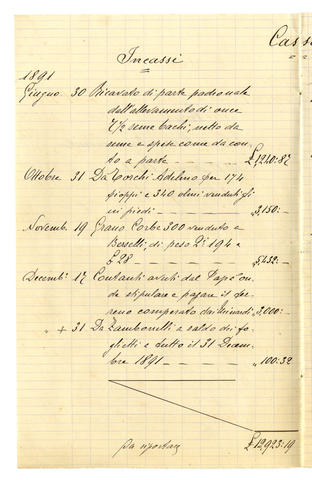 Cass
Incassi
1891
Giugno 30 Ricavato di parte padronale
dall'allevamento di once
7 1/2 seme bachi, netto da
seme e spese come da con-
to a parte _ _ _ _ £ 1240:87
Ottobre 31 Da Torchi Adelmo per 174
pioppi e 340 olmi venduti gli
in piedi _ _ _ _ „ 3,150: _
Novemb. 19 Grano Corbe 300 venduto a
Berselli, di peso Q.li 194 a
£ 28 _ _ _ „ 5432: _
Decemb. 17 Contanti avuti dal
de stipulare e pagare il ter-
reno comperato dai „ 3,000: _
+ 31 Da Zamborelli a saldo dei fo-
ghetti a tutto il 31 Decem-
bre 1891 _ _ _ _ „ 100:32
Da riportare £ 12923:19